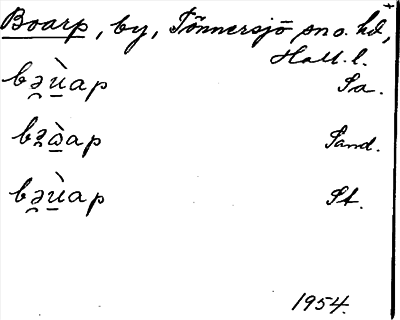 Boarp, by, Tönnersjö sn o. hd,
Hall. l.
bə̯ù̱ap Sa.
bə̯ɷ̱̀ap Sand.
bə̯ù̱ap St.
1954.